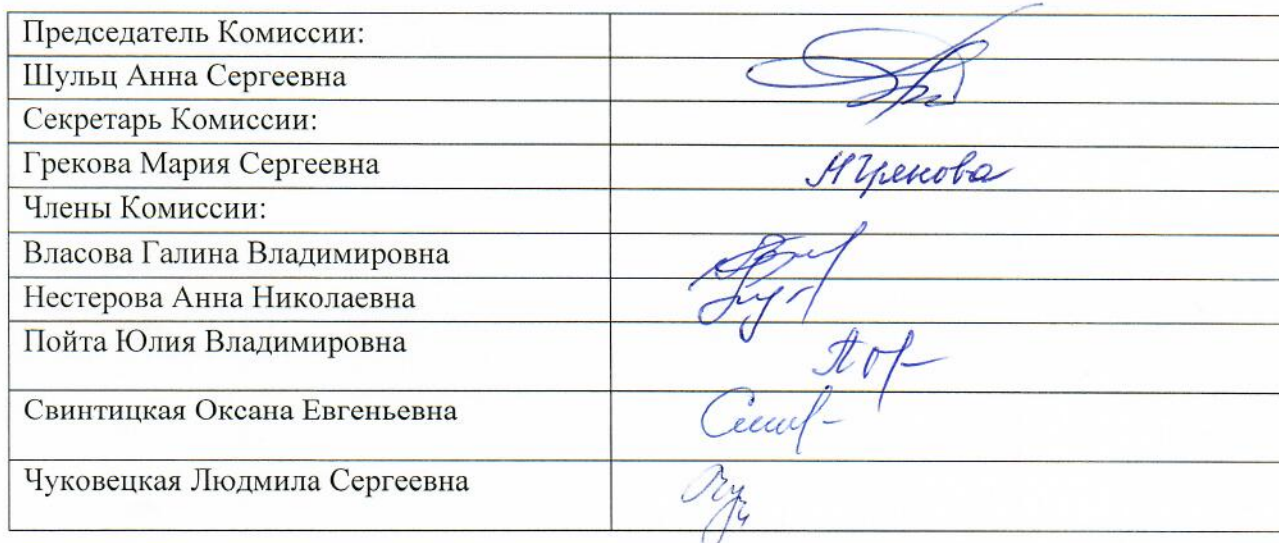 Председатель Комиссии:
Шульц Анна Сергеевна
Секретарь Комиссии:
Грекова Мария Сергеевна
Члены Комиссии:
Власова Галина Владимировна
Нестерова Анна Николаевна
Пойта Юлия Владимировна
Свинтицкая Оксана Евгеньевна
Чуковецкая Людмила Сергеевна